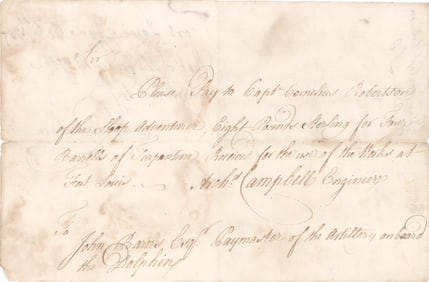 Sir
Please Pay to Capt Cornelius Robertson
of the Sloop Adventurer, Eight Pounds Sterling for Four
Barrells of Turpentine Received for the use of the Works at
Fort Louis. Archd Campbell Engineer
To
John Barns, Esqr. Paymaster of the Artillery on board
the Dolphin